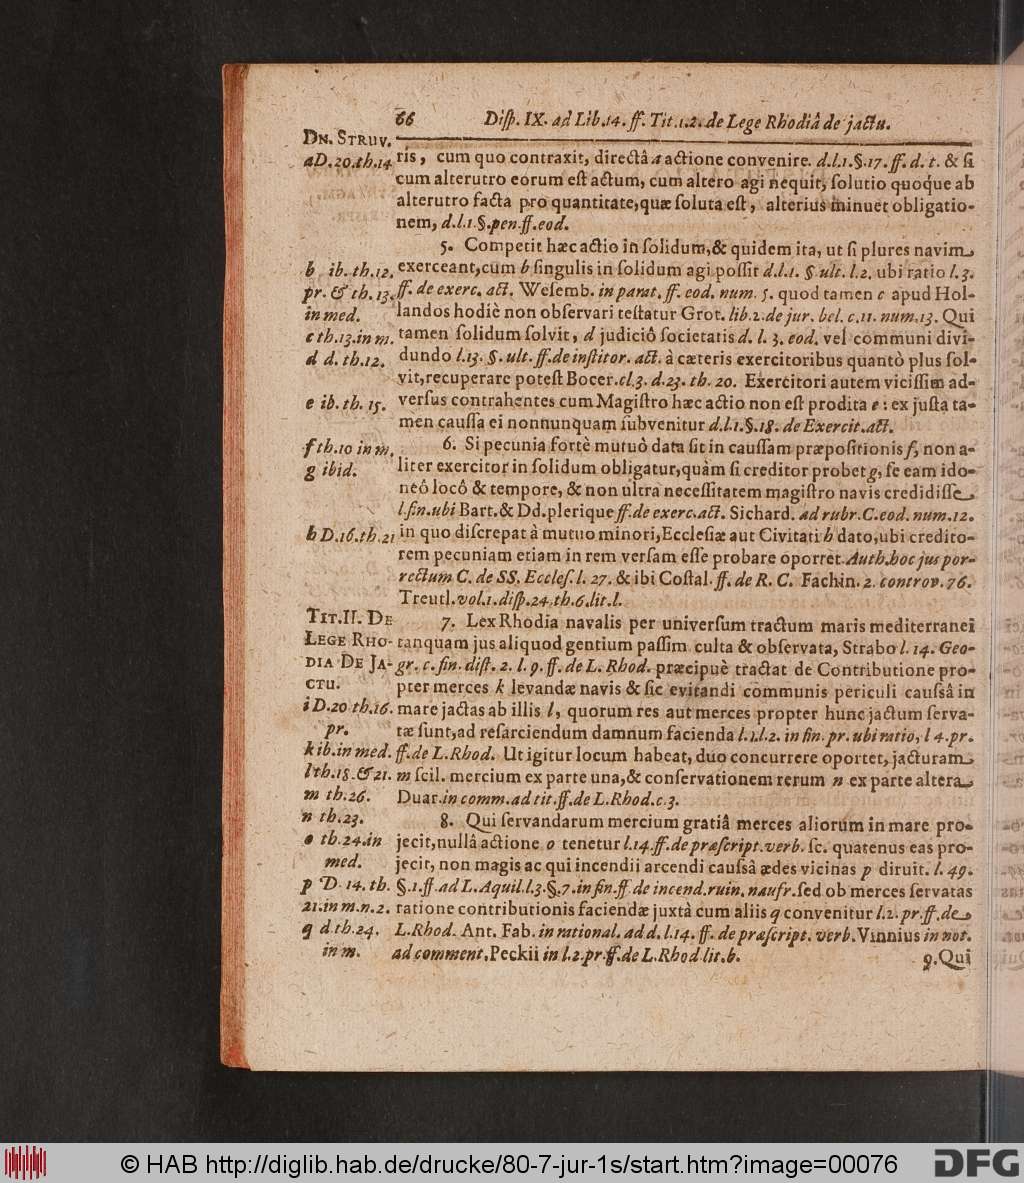 66 Diſp. IX. ad Lib. 14. ff. Tit. 1. 2. de Lege Rhodiâ de jactu.
DN. STRUV.
a D. 20. th. 14 ris, cum quo contraxit, directâ a actione convenire. d. l. 1. §. 17. ff. d. t. & ſi
cum alterutro eorum eſt actum, cum altero agi nequit, ſolutio quoque ab
alterutro facta pro quantitate, quæ ſoluta eſt, alterius minuet obligatio-
nem, d. l. 1. §. pen. ff. eod.
5. Competit hæc actio in ſolidum, & quidem ita, ut ſi plures navim
b ib. th. 12, exerceant, cum b ſingulis in ſolidum agi poſſit d. l. 1. §. ult. l. 2. ubi ratio l. 3.
pr. & th. 13. ff. de exerc. act. Weſemb. in parat. ff. eod. num. 5. quod tamen c apud Hol-
in med. landos hodiè non obſervari teſtatur Grot. lib. 2. de jur. bel. c. 11. num. 13. Qui
c th. 13. in m. tamen ſolidum ſolvit, d judiciô ſocietatis d. l. 3. eod. vel communi divi-
d d. th. 12. dundo l. 13. §. ult. ff. de inſtitor. act. à cæteris exercitoribus quantò plus ſol-
vit, recuperare poteſt Bocer. cl. 3. d. 23. th. 20. Exercitori autem viciſſim ad-
e ib. th. 15. verſus contrahentes cum Magiſtro hæc actio non eſt prodita e: ex juſta ta-
men cauſſa ei nonnunquam ſubvenitur d. l. 1. §. 18. de Exercit. act.
f th. 10 in m. 6. Si pecunia fortè mutuô data ſit in cauſſam præpoſitionis f, non a-
g ibid. liter exercitor in ſolidum obligatur, quàm ſi creditor probet g, ſe eam ido-
neô locô & tempore, & non ultra neceſſitatem magiſtro navis credidiſſe
l. fin. ubi Bart. & Dd. plerique ff. de exerc. act. Sichard. ad rubr. C. eod. num. 12.
h D. 16. th. 21 in quo diſcrepat à mutuo minori, Eccleſiæ aut Civitati h dato, ubi credito-
rem pecuniam etiam in rem verſam eſſe probare oportet. Auth. hoc jus por-
rectum C. de SS. Eccleſ. l. 27. & ibi Coſtal. ff. de R. C. Fachin. 2. controv. 76.
Treutl. vol. 1. diſp. 24. th. 6. lit. l.
TIT. II. DE 7. Lex Rhodia navalis per univerſum tractum maris mediterranei
LEGE RHO- tanquam jus aliquod gentium paſſim culta & obſervata, Strabo l. 14. Geo-
DIA DE JA- gr. c. fin. diſt. 2. l. 9. ff. de L. Rhod. præcipuè tractat de Contributione pro-
CTU. pter merces k levandæ navis & ſic evitandi communis periculi cauſsâ in
i D. 20 th. 16. mare jactas ab illis l, quorum res aut merces propter hunc jactum ſerva-
pr. tæ ſunt, ad reſarciendum damnum facienda l. 1. l. 2. in fin. pr. ubi ratio, l 4. pr.
k ib. in med. ff. de L. Rhod. Ut igitur locum habeat, duo concurrere oportet, jacturam
l th. 18. & 21. m ſcil. mercium ex parte una, & conſervationem rerum n ex parte altera
m th. 26. Duar. in comm. ad tit. ff. de L. Rhod. c. 3.
n th. 23. 8. Qui ſervandarum mercium gratiâ merces aliorum in mare pro-
o th. 24. in jecit, nullâ actione o tenetur l. 14. ff. de præſcript. verb. ſc. quatenus eas pro-
med. jecit, non magis ac qui incendii arcendi cauſsâ ædes vicinas p diruit. l. 49.
p D. 14. th. §. 1. ff. ad L. Aquil. l. 3. §. 7. in fin. ff. de incend. ruin. naufr. ſed ob merces ſervatas
21. in m. n. 2. ratione contributionis faciendæ juxtà cum aliis q convenitur l. 2. pr. ff. de
q d. th. 24. L. Rhod. Ant. Fab. in rational. ad d. l. 14. ff. de præſcript. verb. Vinnius in not.
in m. ad comment. Peckii in l. 2. pr. ff. de L. Rhod lit. b.
9. Qui
© HAB http://diglib.hab.de/drucke/80-7-jur-1s/start.htm?image=00076
DFG